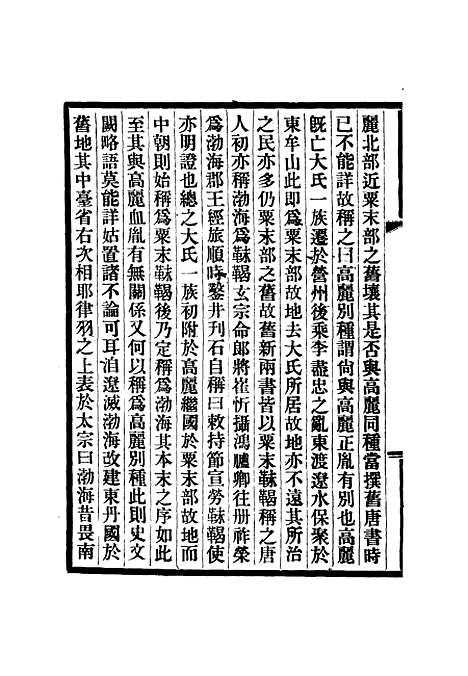 麗北部近粟末部之舊壤其是否與高麗同種當撰舊唐書時
已不能詳故稱之曰高麗別種謂尙與高麗正胤有別也高麗
旣亡大氏一族遷於營州後乘李盡忠之亂東渡遼水保聚於
東牟山此即爲粟末部故地去大氏所居故地亦不遠其所治
之民亦多仍粟末部之舊故舊新兩書皆以粟末靺鞨稱之唐
人初亦稱渤海爲靺鞨玄宗命郎將崔忻攝鴻臚卿往册祚榮
爲渤海郡王經旅順時鑿井刊石自稱曰敕持節宣勞靺鞨使
亦明證也總之大氏一族初附於高麗繼國於粟末部故地而
中朝則始稱爲粟末靺鞨後乃定稱爲渤海其本末之序如此
至其與高麗血胤有無關係又何以稱爲高麗別種此則史文
闕略語莫能詳姑置諸不論可耳洎遼滅渤海改建東丹國於
舊地其中臺省右次相耶律羽之上表於太宗曰渤海昔畏南